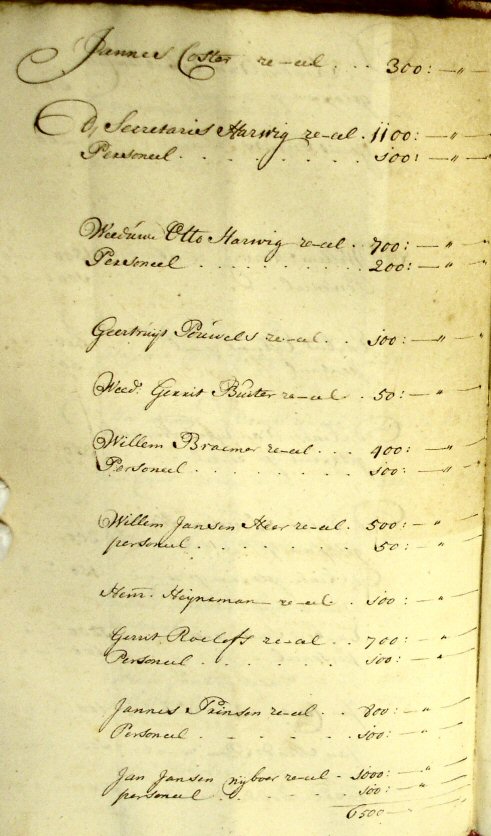 Jannes Coster re-eel . . . 300: — " —
D, Secretaris Harwig re-eel . 1100: — " —
Personeel . . . . . . 100: — " —
Weeduwe Otto Harwig re-eel . 700: — " —
Personeel . . . . . . . . . 200: — " —
Geertruijt Pouwels re-eel . . 100: — " —
Weed. Gerrit Buter re-eel . 50: — " —
Willem Braemer re-eel . . . 400: — " —
Personeel . . . . . . . . 100: — " —
Willem Jansen Heer re-eel . 500: — "
personeel . . . . . . . 50: — "
Henr. Heijneman re-eel . 100: — "
Gerrit Roelofs re-eel . . 700: — "
Personeel . . . . . . 100: — "
Jannes Prinsen re-eel . . 800: — "
Personeel . . . . . . 100: — "
Jan Jansen nijboer re-eel - 1000: — "
personeel . . . . . . 100: — "
6500 —